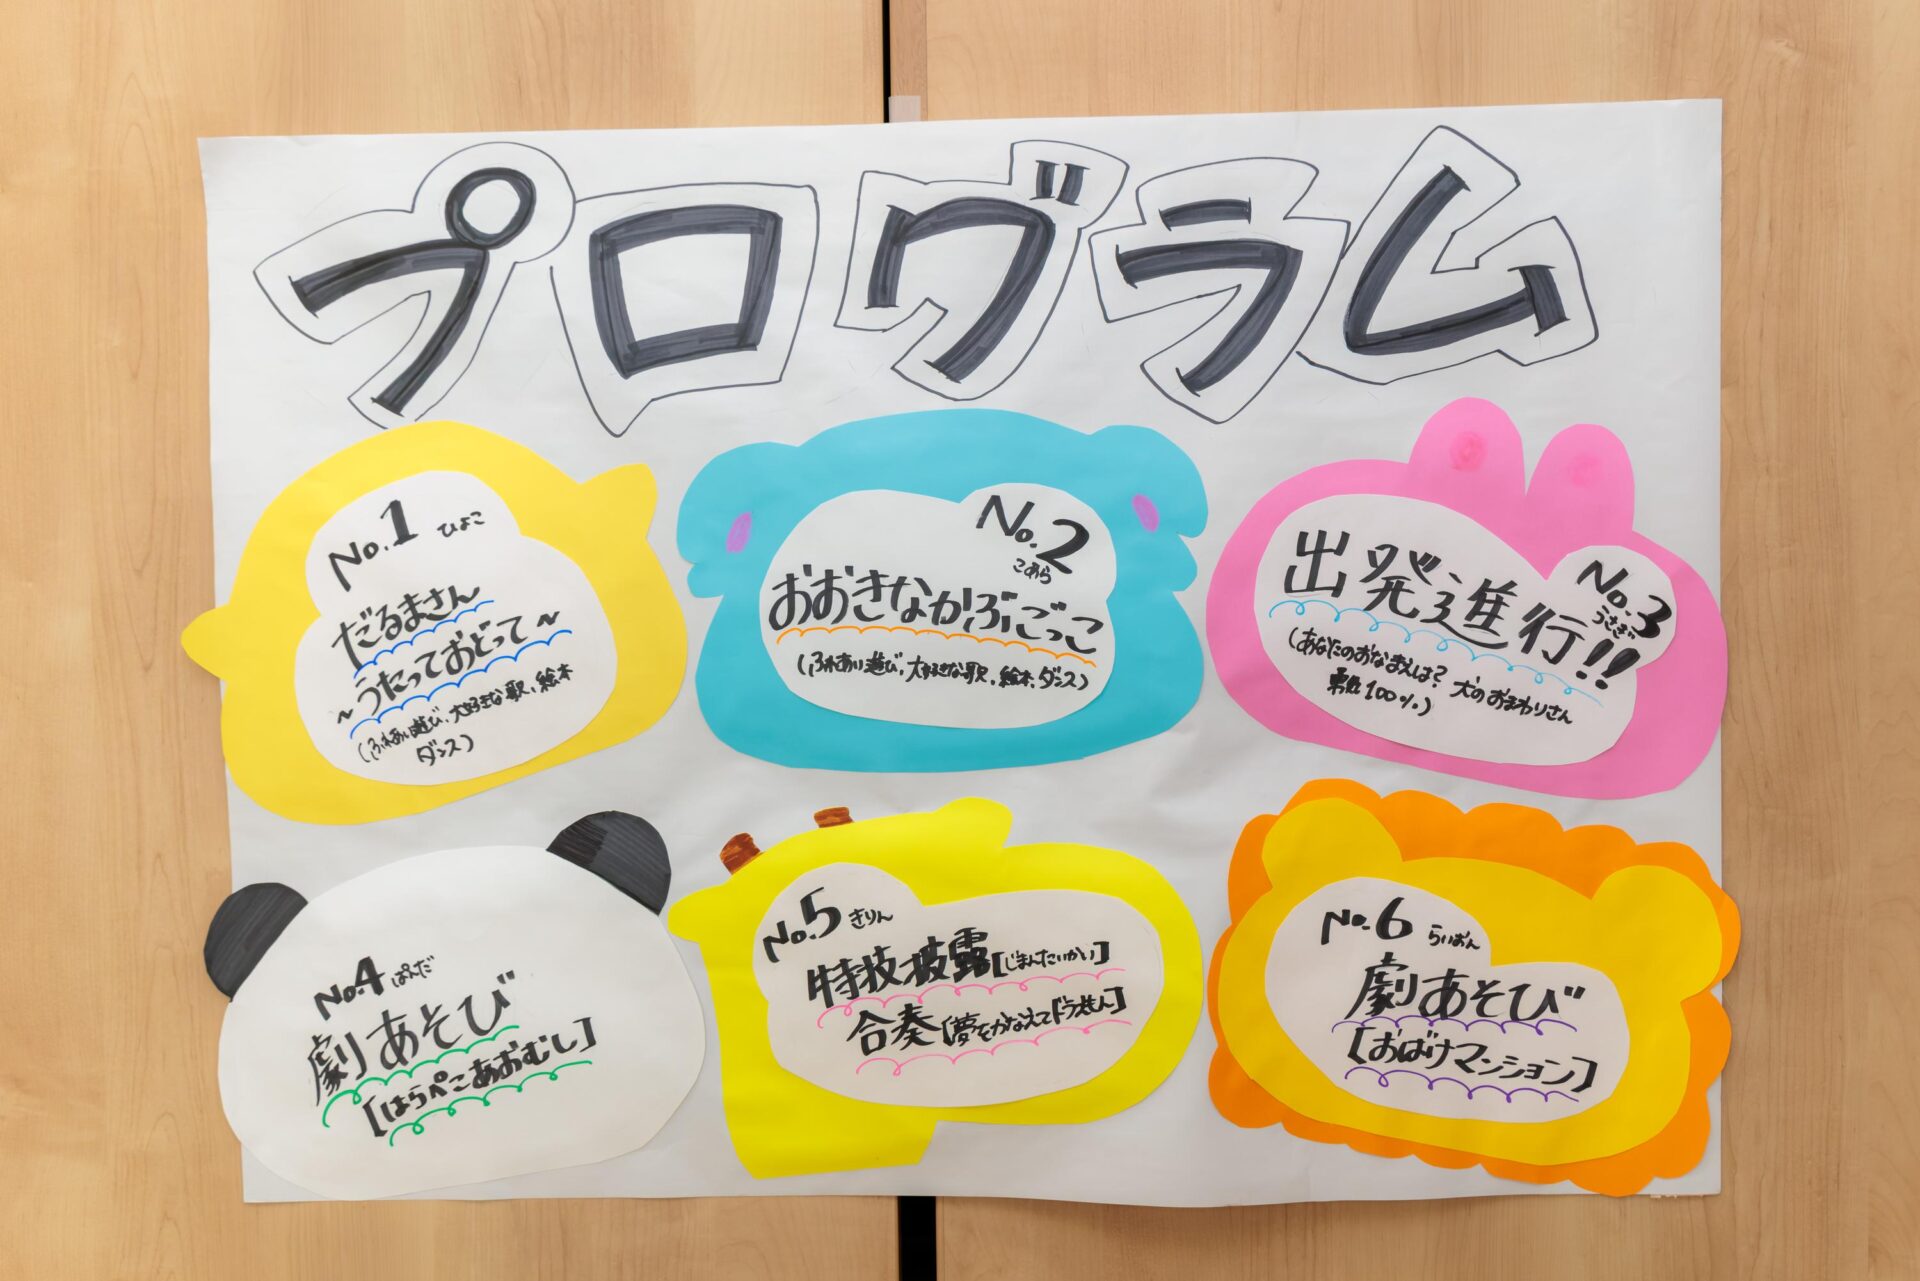 プログラム
No.1 ひよこ
だるまさん
~うたっておどって~
(ふれあい遊び、大好きな歌、絵本
ダンス)
No.2
こあら
おおきなかぶごっこ
(ふれあい遊び、大好きな歌、絵本、ダンス)
No.3
うさぎ
出発進行!!
(あなたのおなまえは? 犬のおまわりさん
勇気100%)
No.4 ぱんだ
劇あそび
[はらぺこあおむし]
No.5 きりん
特技披露[じまんたいかい]
合奏[夢をかなえてドラえもん]
No.6 らいおん
劇あそび
[おばけマンション]